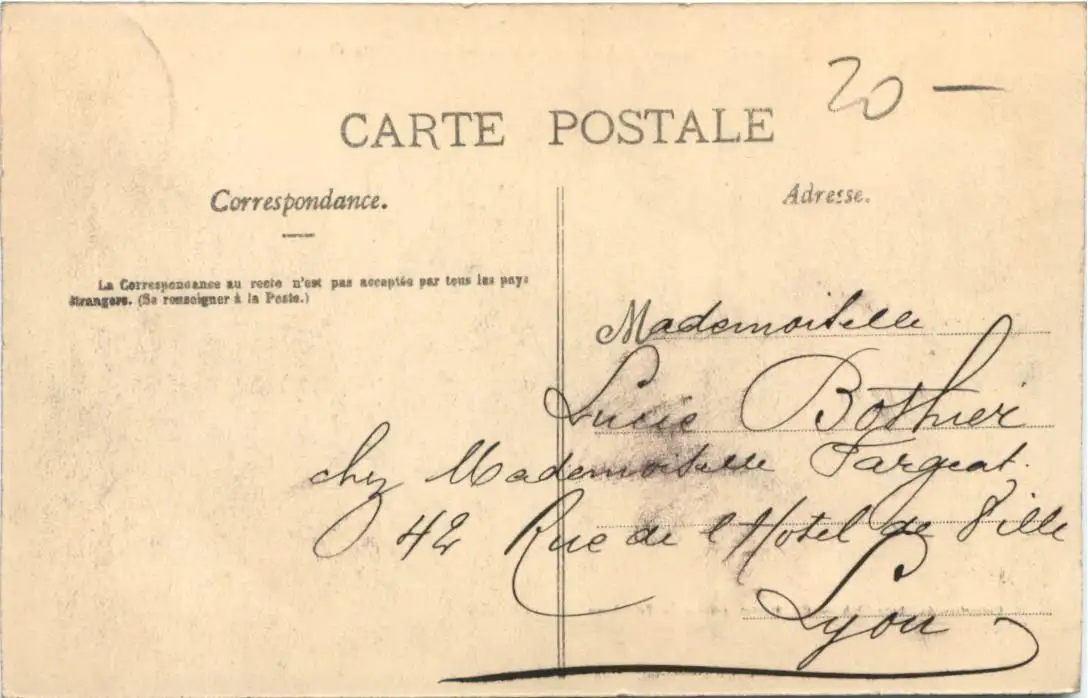 20 —
CARTE POSTALE
Correspondance.
Adresse.
La Correspondance au recto n'est pas acceptée par tous les pays
étrangers. (Se renseigner à la Poste.)
Mademoiselle
Lucie Bothier
chez Mademoiselle Fargeat.
42 Rue de l'Hotel de Ville
Lyon